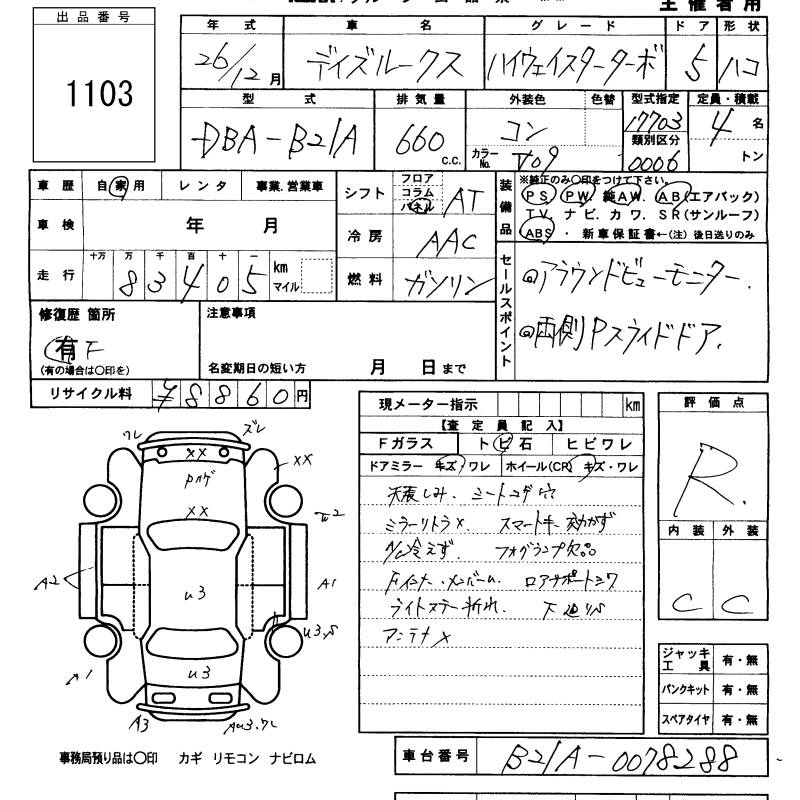 主催者用
出品番号
1103
年式 車名 グレード ドア 形状
26/12月 デイズルークス ハイウェイスターターボ 5 ハコ
型式 排気量 外装色 色替 型式指定 定員・積載
DBA-B21A 660 c.c. コン 17703 4 名
カラーNo. V09 類別区分 0006 トン
車歴 自家用 レンタ 事業.営業車
シフト フロア コラム パネル AT
車検 年 月
冷房 AAC
走行 十万 万 千 百 十 一
83405 km マイル
燃料 ガソリン
装備品 ※純正のみ〇印をつけて下さい。
PS. PW. 純AW. AB(エアバック)
TV. ナビ. カワ. SR(サンルーフ)
ABS ・ 新車保証書←(注) 後日送りのみ
セールスポイント
◎アラウンドビューモニター.
◎両側Pスライドドア.
修復歴 箇所
有 F
(有の場合は〇印を)
注意事項
名変期日の短い方 月 日まで
リサイクル料 ¥8860円
現メーター指示 km
【査定員記入】
Fガラス トビ石 ヒビワレ
ドアミラー キズ・ワレ ホイール(CR) キズ・ワレ
天張しみ. シートコゲ穴
ミラーリトラ×. スマートキー効かず
A/C冷えず. フォグランプ欠品
Fインナー・メンバーム. ロアサポートシワ
ライトステー折れ. 下廻りS
アンテナ×
評価点
R.
内装 外装
C C
ワレ ズレ
×× ××
Pハゲ
××
A2 u3 A1
u3.S
u3
A1
A3 Au3.ワレ
ジャッキ工具 有・無
パンクキット 有・無
スペアタイヤ 有・無
事務局預り品は〇印 カギ リモコン ナビロム
車台番号 B21A-0078288